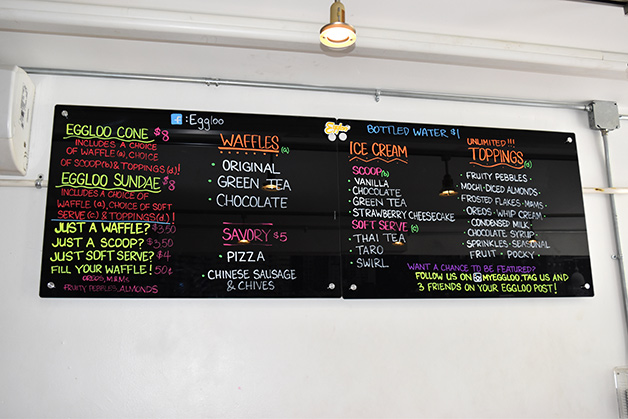 f :Eggloo
EGGLOO CONE $8
INCLUDES A CHOICE OF
WAFFLE (a), CHOICE
OF SCOOP(b) & TOPPINGS (d)!
EGGLOO SUNDAE $8
INCLUDES A CHOICE OF
WAFFLE (a), CHOICE OF SOFT
SERVE (c) & TOPPINGS (d)!
JUST A WAFFLE? $3.50
JUST A SCOOP? $3.50
JUST SOFT SERVE? $4
FILL YOUR WAFFLE! 50¢
OREOS, M&MS
FRUITY PEBBLES, ALMONDS
WAFFLES (a)
• ORIGINAL
• GREEN TEA
• CHOCOLATE
SAVORY $5
• PIZZA
• CHINESE SAUSAGE
& CHIVES
Eggloo
BOTTLED WATER $1
ICE CREAM
SCOOP(b)
VANILLA
CHOCOLATE
GREEN TEA
STRAWBERRY CHEESECAKE
SOFT SERVE (c)
• THAI TEA
• TARO
• SWIRL
UNLIMITED!!!
TOPPINGS (d)
• FRUITY PEBBLES •
• MOCHI • DICED ALMONDS •
FROSTED FLAKES • M&MS •
OREOS • WHIP CREAM •
• CONDENSED MILK •
CHOCOLATE SYRUP •
SPRINKLES • SEASONAL
FRUIT • POCKY •
WANT A CHANCE TO BE FEATURED?
FOLLOW US ON MYEGGLOO, TAG US AND
3 FRIENDS ON YOUR EGGLOO POST!